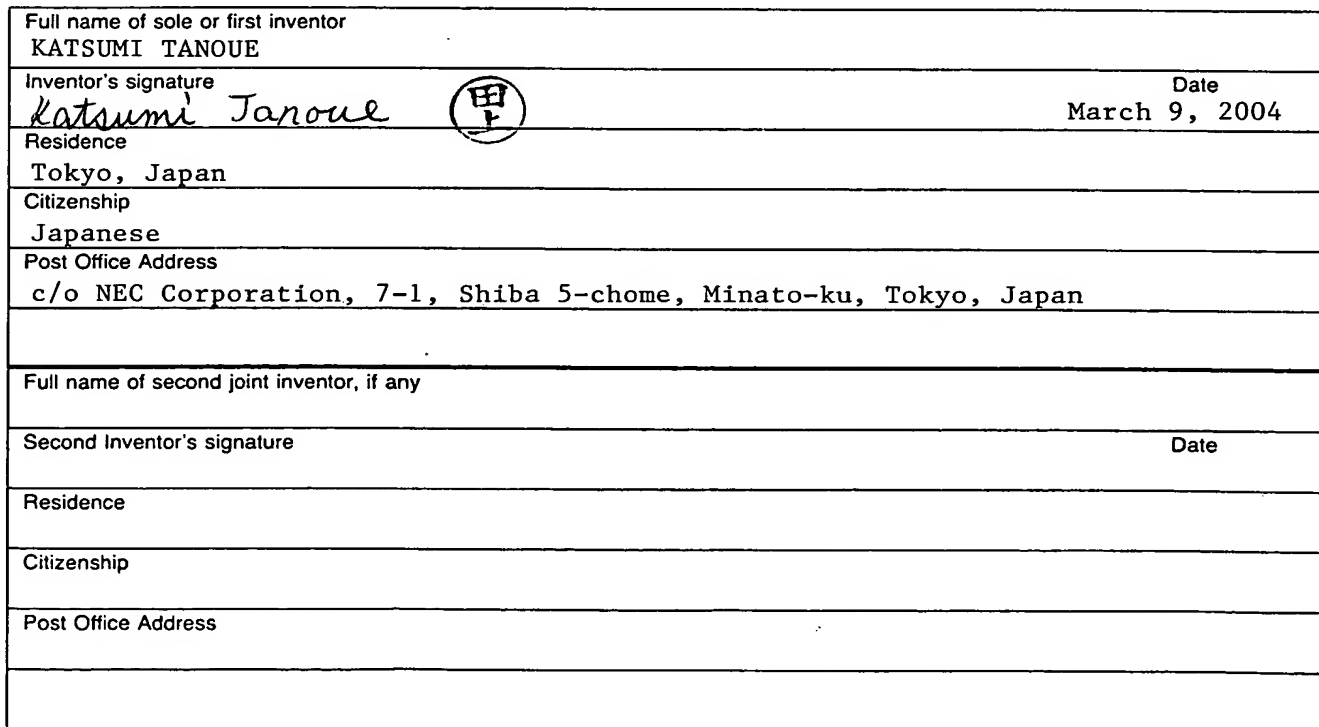 Full name of sole or first inventor
KATSUMI TANOUE
Inventor's signature
Katsumi Tanoue 田上
Date
March 9, 2004
Residence
Tokyo, Japan
Citizenship
Japanese
Post Office Address
c/o NEC Corporation, 7-1, Shiba 5-chome, Minato-ku, Tokyo, Japan
Full name of second joint inventor, if any
Second Inventor's signature
Date
Residence
Citizenship
Post Office Address